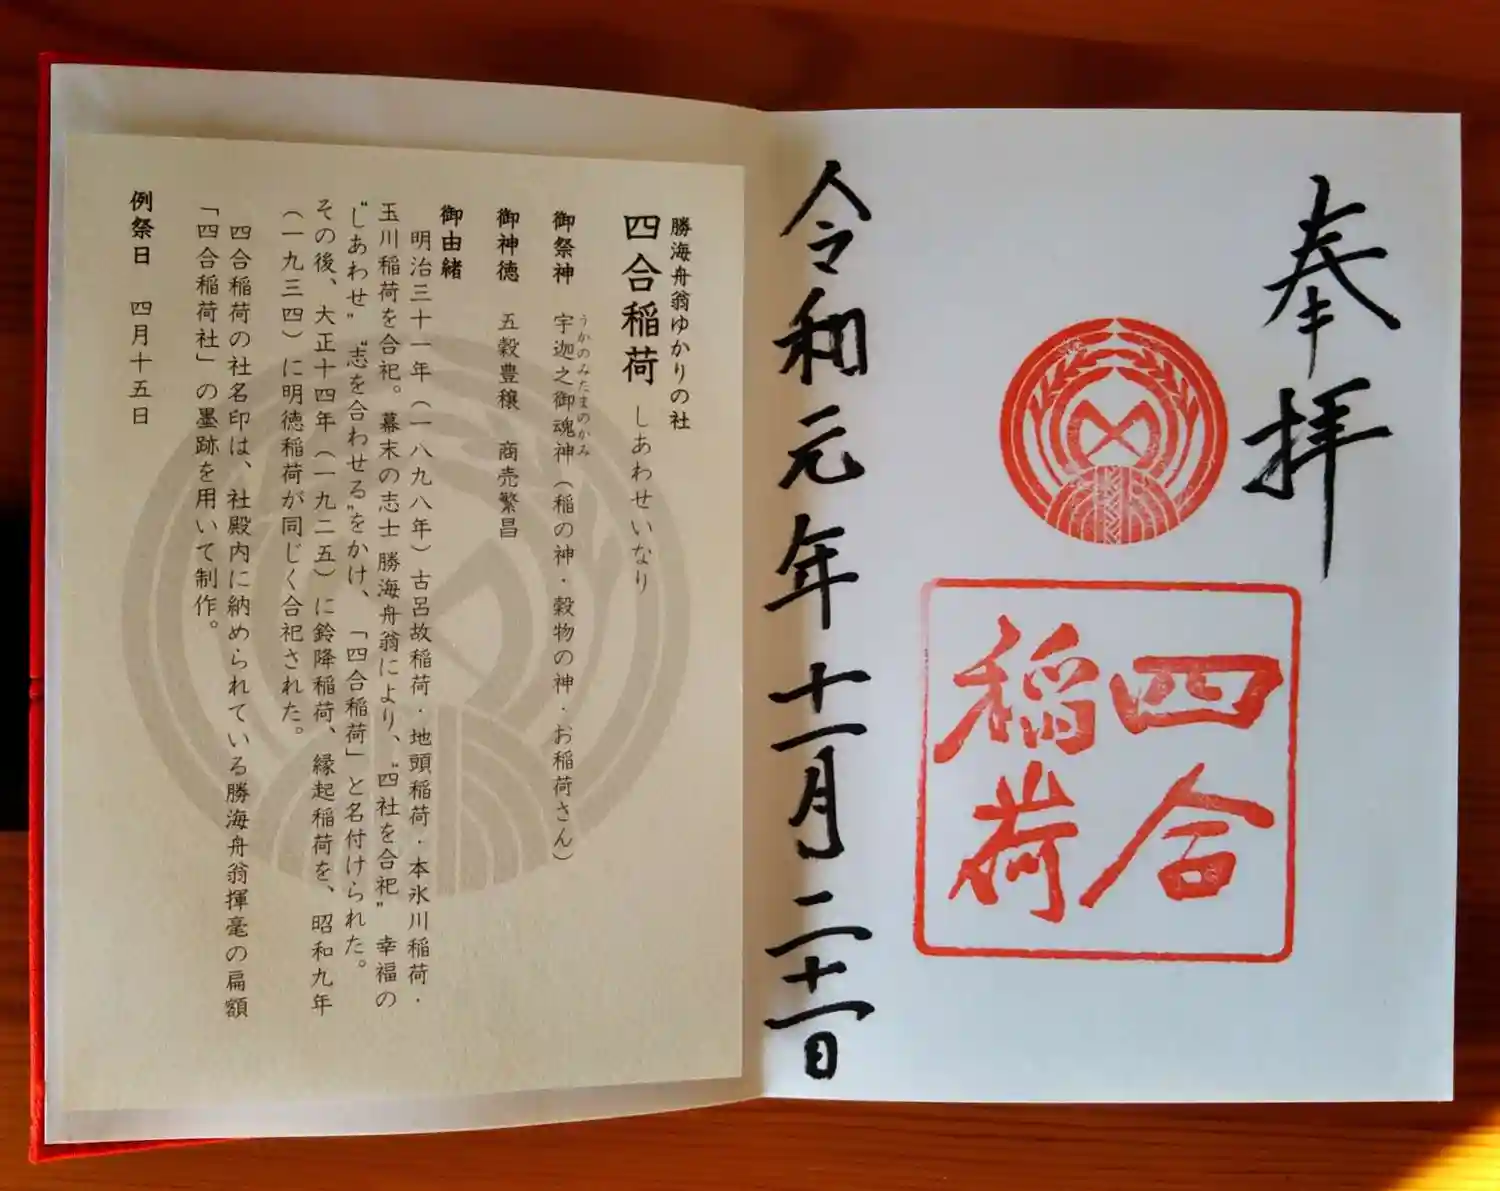 奉拝
四合
稲荷
令和元年十一月二十一日
勝海舟翁ゆかりの社
四合稲荷 しあわせいなり
うかのみたまのかみ
御祭神 宇迦之御魂神（稲の神・穀物の神・お稲荷さん）
御神徳 五穀豊穣 商売繁昌
御由緒
明治三十一年（一八九八年）古呂故稲荷・地頭稲荷・本氷川稲荷・
玉川稲荷を合祀。幕末の志士 勝海舟翁により、“四社を合祀” 幸福の
“しあわせ” “志を合わせる”をかけ、「四合稲荷」と名付けられた。
その後、大正十四年（一九二五）に鈴降稲荷、縁起稲荷を、昭和九年
（一九三四）に明徳稲荷が同じく合祀された。
四合稲荷の社名印は、社殿内に納められている勝海舟翁揮毫の扁額
「四合稲荷社」の墨跡を用いて制作。
例祭日 四月十五日